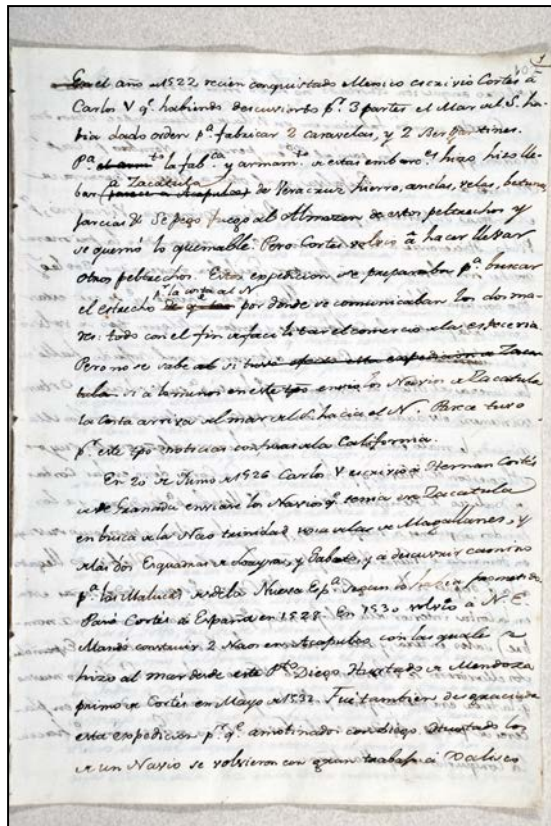 1
En el año de 1522 recien conquistado Mexico escrivio Cortés à
Carlos V q.e habiendo descuvierto p.r 3 partes el Mar del S. ha-
bia dado orden p.a fabricar 2 caravelas, y 2 Bergantines.
P.a la fab.ca y armam.to de estas embarc.s hizo lle-
bar à Zacatula de Veracruz hierro, anclas, velas, betunes
jarcias &c Se pego fuego al Almazen de estos peltrechos y
se quemó lo quemable. Pero Cortés volvió à hacer llebar
otros peltrechos. Esta expedicion se preparaba p.a buscar
el estrecho p.r la costa al N por donde se comunicaban los dos ma-
res: todo con el fin de facilitar el comercio de la especeria.
Pero no se sabe si
à lo menos en este tpo envio los Navios de Zacatula
la Costa arriva del mar del S. hacia el N. Parece tuvo
p.r este tpo noticias de la California.
En 20 de Junio de 1526 Carlos V escrivio à Hernan Cortés
desde Granada enviase los Navios q.e tenia en Zacatula
en busca de la Nao trinidad de Magallanes, y
de las dos Esquadras de Loaysa, y Gaboto, y à descuvrir camino
p.a las Malucas desde la Nueva Esp.a segun lo havia prometido.
Pasó Cortés à España en 1528. En 1530 volvió à N. E.
Mandó construir 2 Naos en Acapulco con las quales se
hizo al mar desde este P.to Diego Hurtado de Mendoza
primo de Cortés en Mayo de 1532. Fue tambien desgraciada
esta expedicion p.r q.e amotinados con Diego Hurtado los
de un Navio se volvieron con gran trabajo à Xalisco